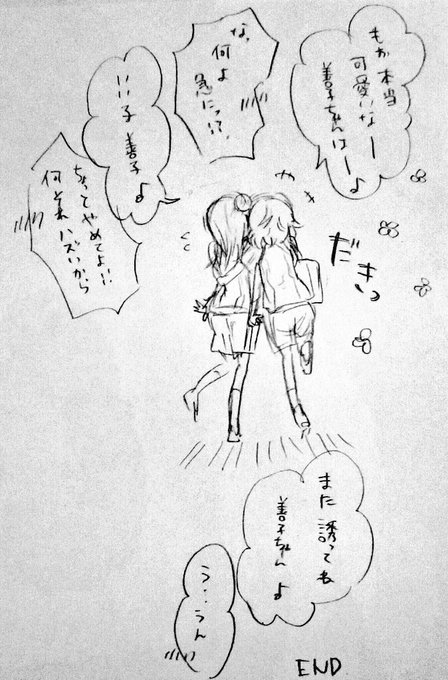 もぉ本当
可愛いなー
善子ちゃんはー♪
な、何よ
急にって、
いい子 善子♪
ちょってやめてよ‥
何それハズいから
だきっ
また誘ってね
善子ちゃん♪
う‥うん
END